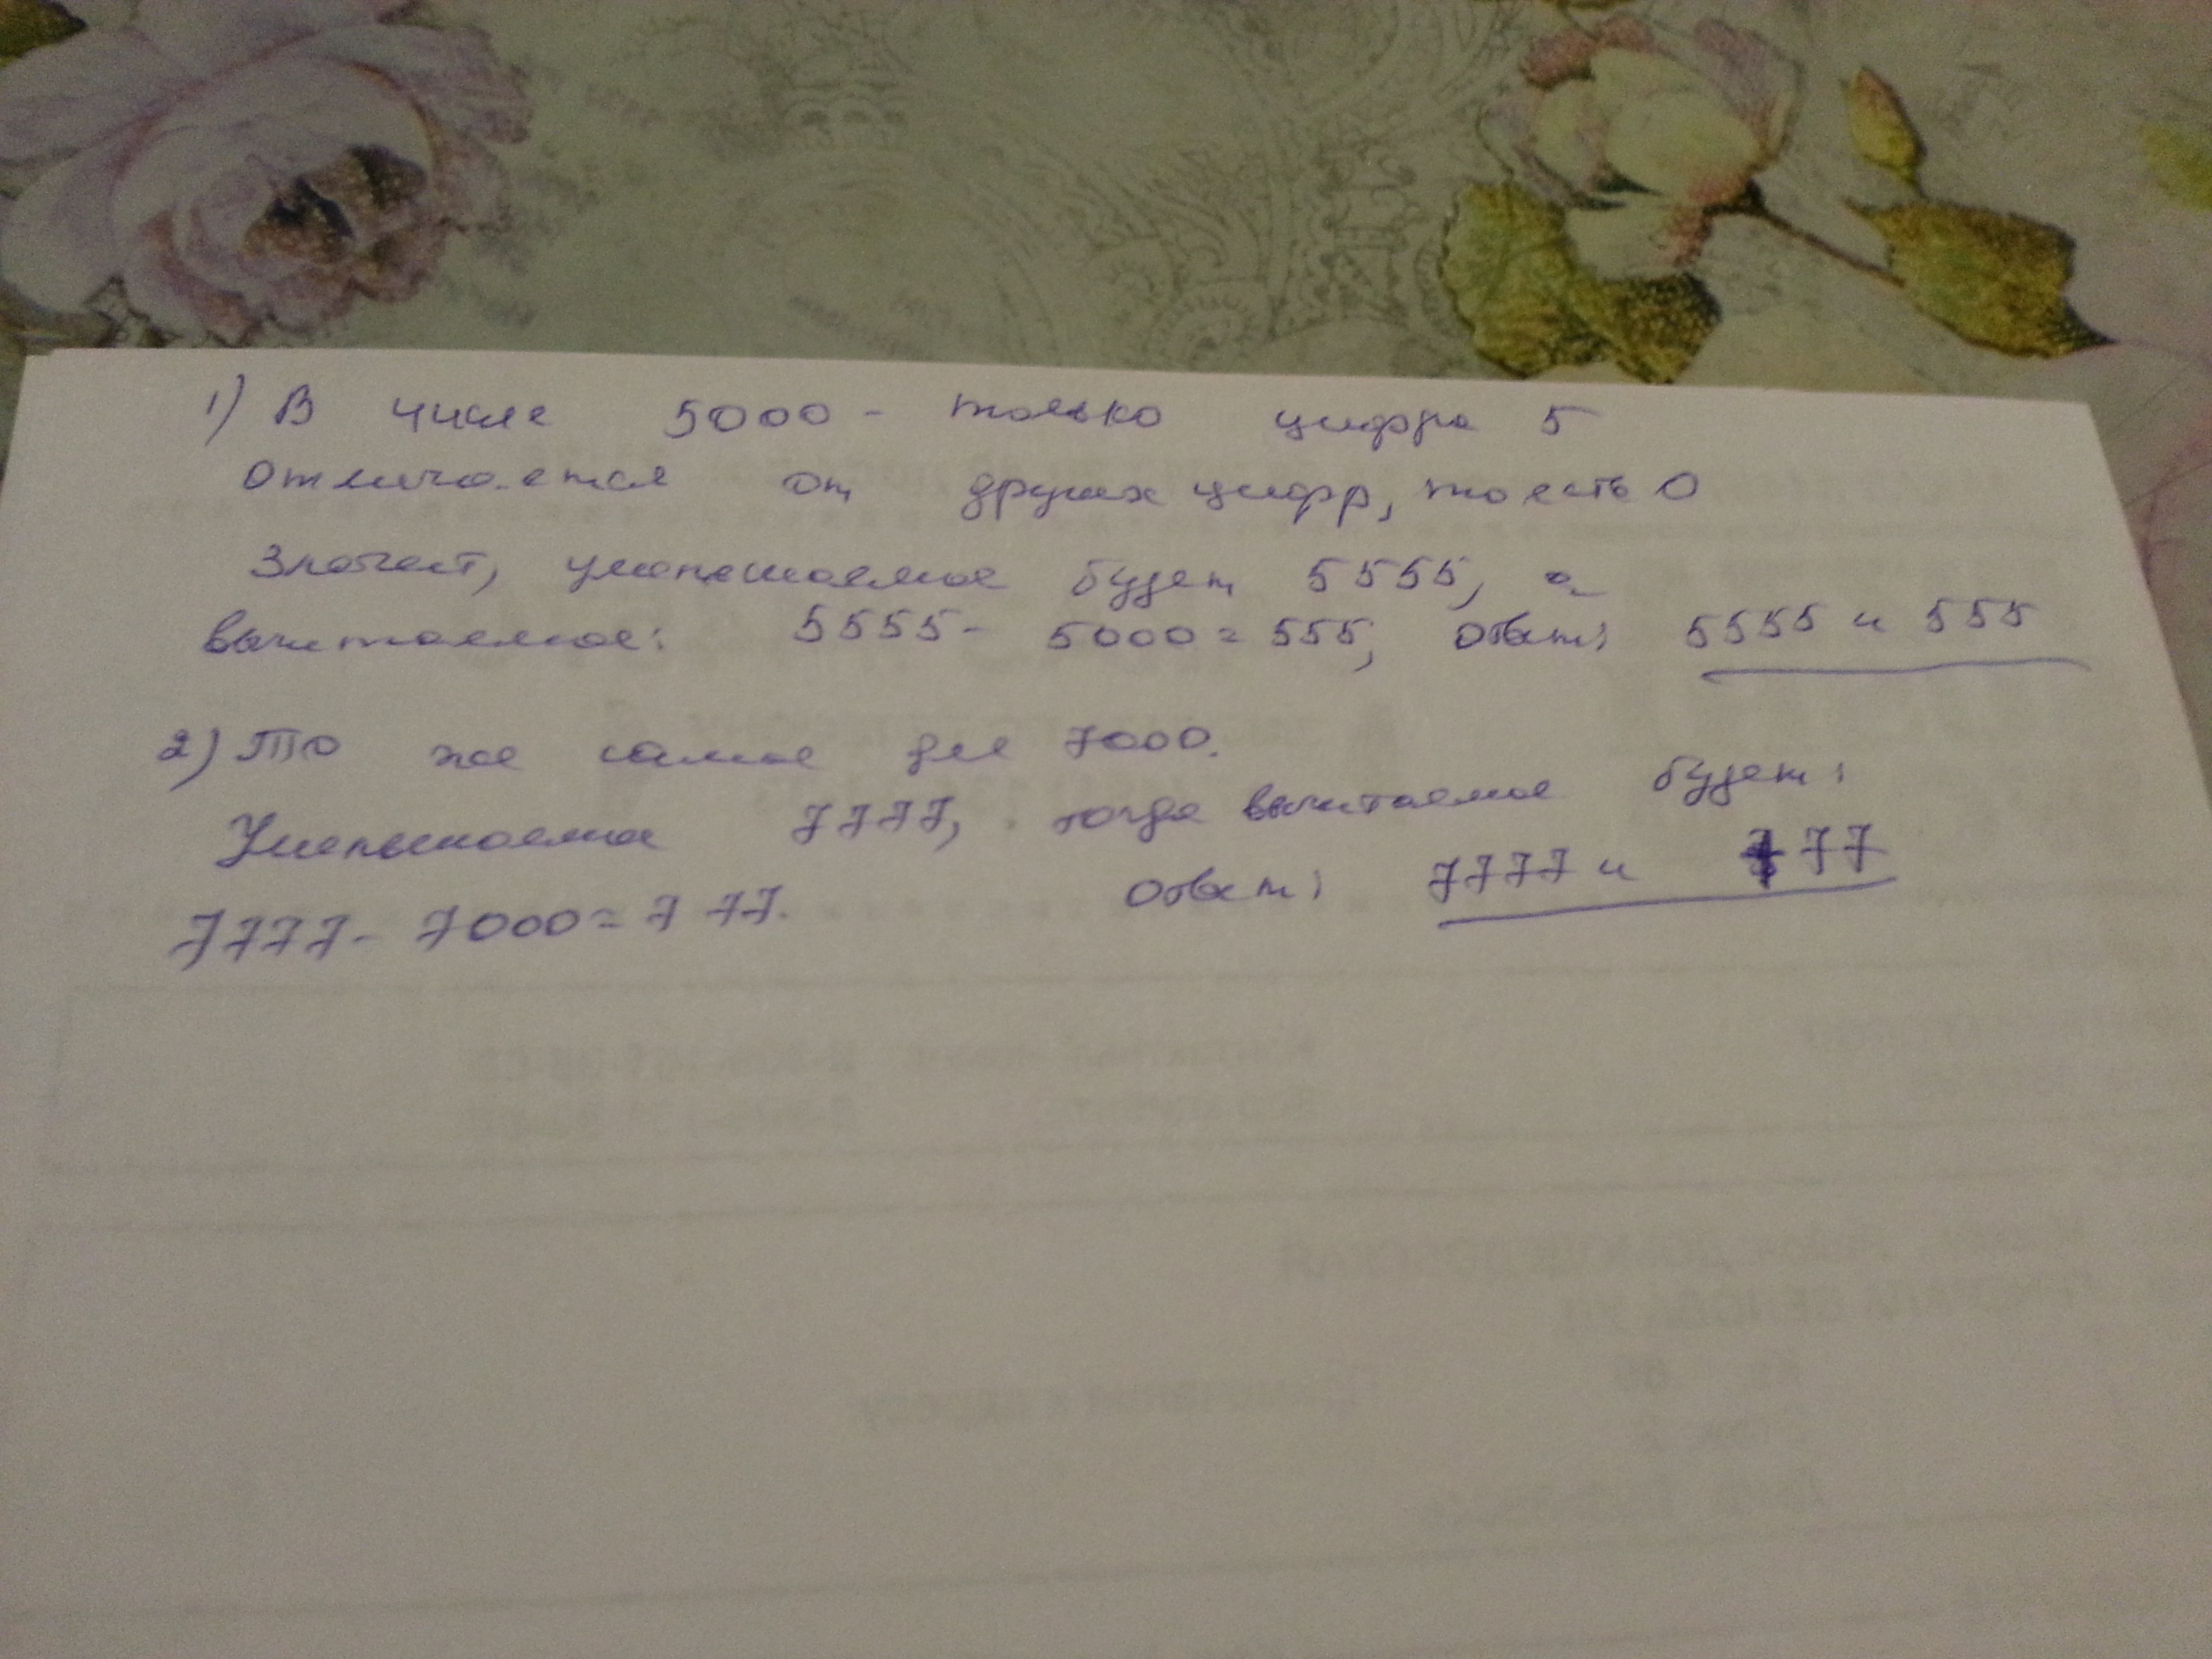 1) В числе 5000 - только цифра 5
отличается от других цифр, то есть 0
Значит, уменьшаемое будет 5555, а
вычитаемое: 5555 - 5000 = 555; Ответ: 5555 и 555
2) То же самое для 7000.
Уменьшаемое 7777, тогда вычитаемое будет:
7777 - 7000 = 777. Ответ: 7777 и 777